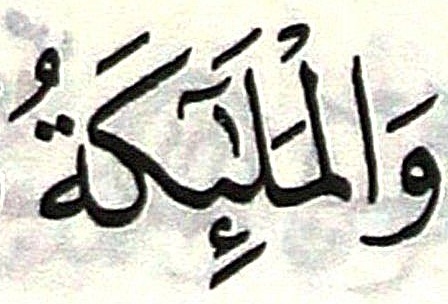 وَالْمَلَٰٓئِكَةُ